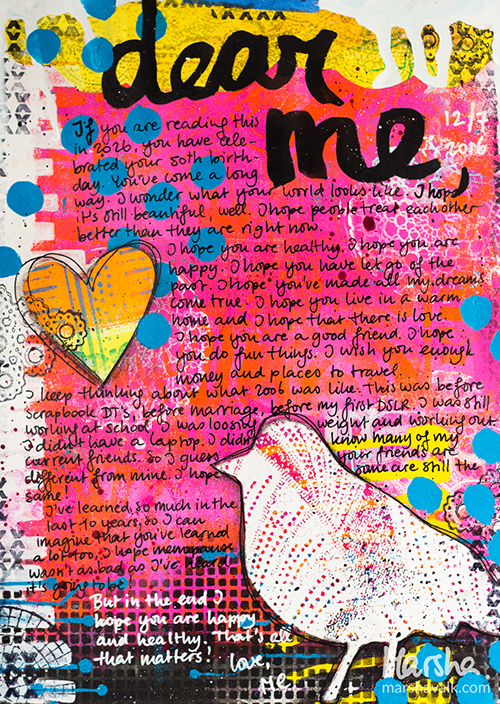 dear
me,
12/7
2016
If you are reading this
in 2026, you have cele-
brated your 50th birth-
day. You've come a long
way. I wonder what your world looks like. I hope
it's still beautiful, well. I hope people treat each other
better than they are right now.
I hope you are healthy. I hope you are
happy. I hope you have let go of the
past. I hope you've made all my dreams
come true. I hope you live in a warm
home and I hope that there is love.
I hope you are a good friend. I hope
you do fun things. I wish you enough
money and places to travel.
I keep thinking about what 2006 was like. This was before
scrapbook DT's, before marriage, before my first DSLR. I was still
working at school. I was loosing weight and working out.
I didn't have a laptop. I didn't know many of my
current friends. So I guess your friends are
different from mine. I hope some are still the
same!
I've learned so much in the
last 10 years, so I can
imagine that you've learned
a lot too. I hope menopause
wasn't as bad as I've heard
it's going to be!
But in the end I
hope you are happy
and healthy. That's all
that matters!
love,
me
Marsha
marshavalk.com